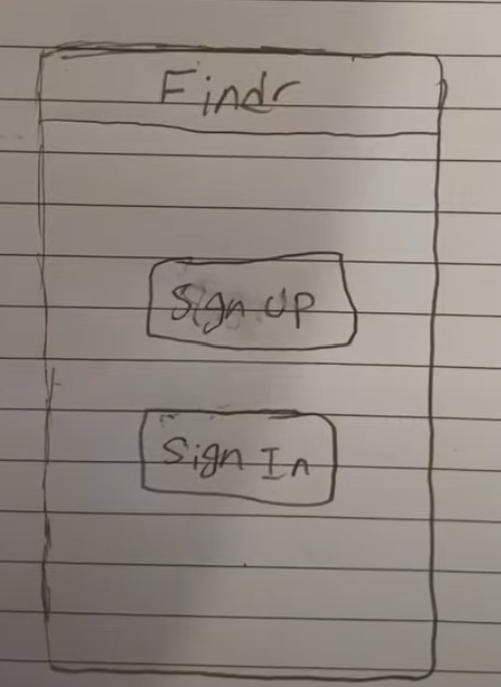 Findr
Sign Up
Sign In